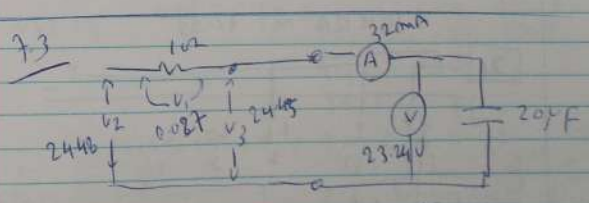 7.3
1Ω
32mA
A
V₁
0.087
V₂
2448
V₃
2445
V
23.24V
20μF